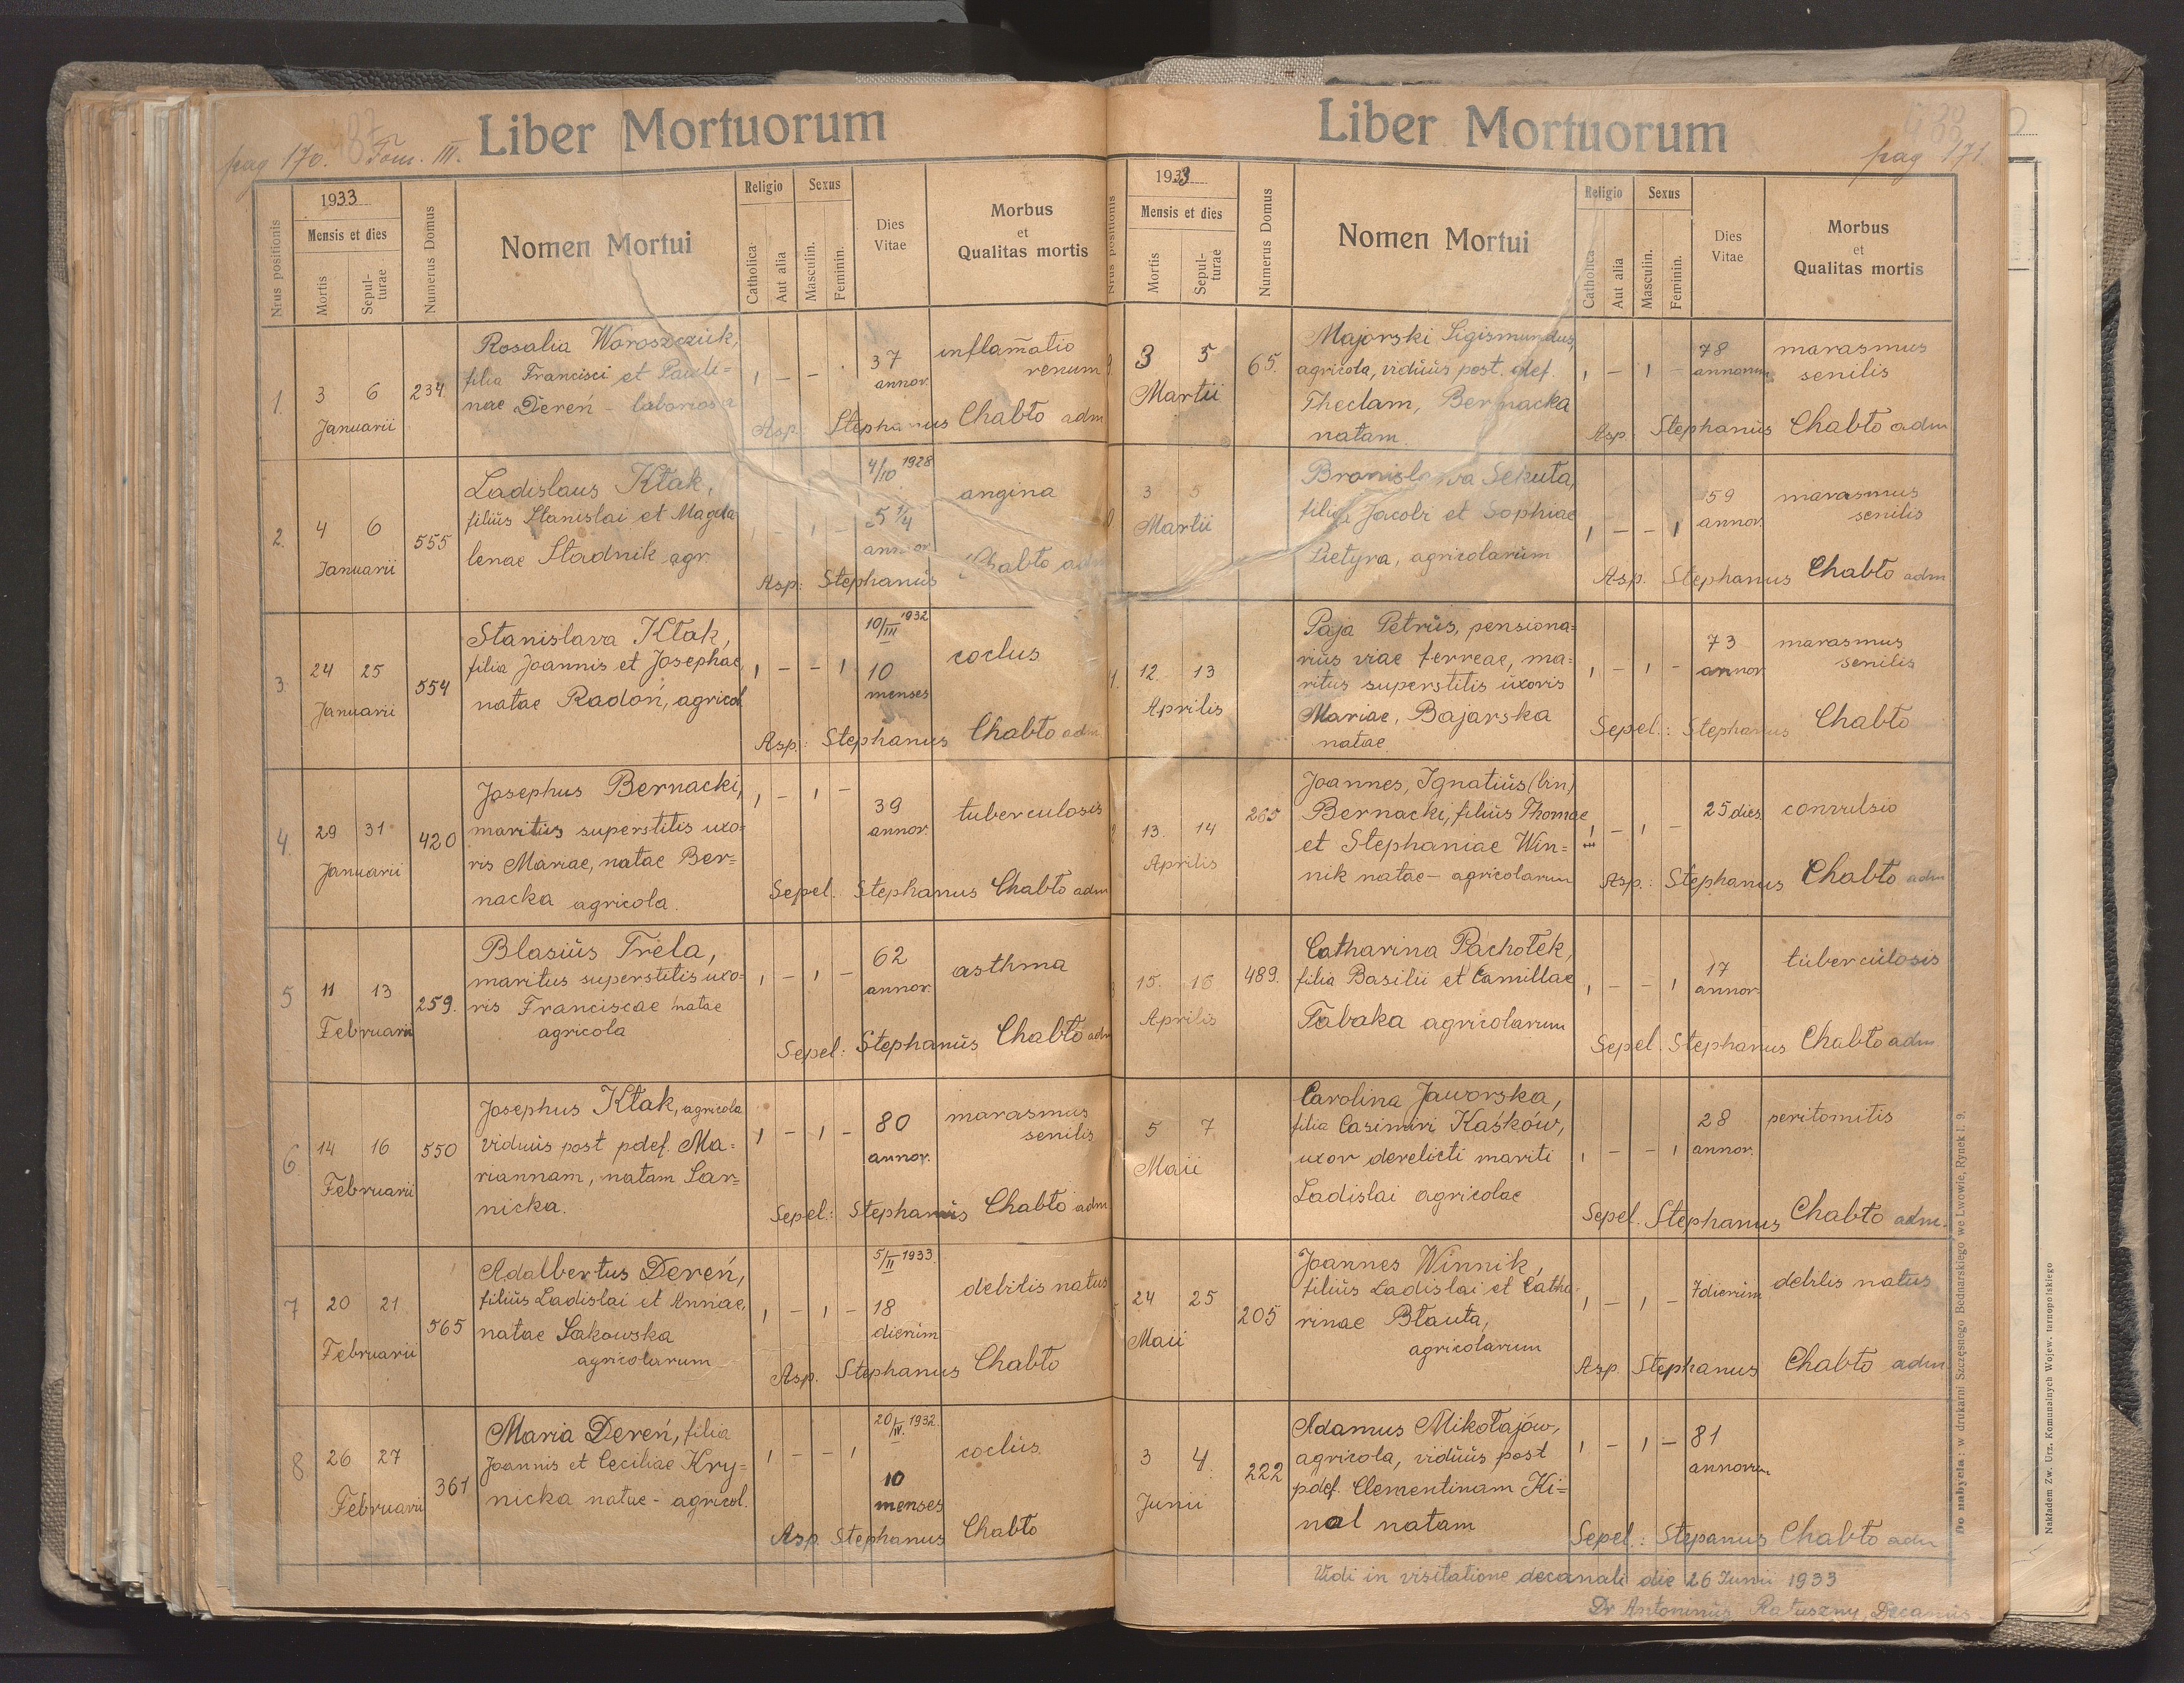 pag 170. Tom. III.
Liber Mortuorum
Nrus positionis
1933
Mensis et dies
Mortis
Sepul-
turae
Numerus Domus
Nomen Mortui
Religio
Catholica
Aut alia
Sexus
Masculin.
Feminin.
Dies
Vitae
Morbus
et
Qualitas mortis
1. 3 6 234
Januarii
Rosalia Woroszczuk,
filia Francisci et Pauli=
nae Dereń - laboriosa
1 - -
37
annor.
inflam̃atio
renum
Asp: Stephanus Chabło adm
2. 4 6 555
Januarii
Ladislaus Kłak,
filiŭs Stanislai et Magda
lenae Stadnik agr.
4/10 1928
5 1/4
annor
angina
Asp: Stephanŭs Chabło adm
3. 24 25 554
Januarii
Stanislava Kłak,
filia Joannis et Josephae,
natae Radoń, agricol
1 - - 1
10/III 1932
10
menses
coclus
Asp: Stephanus Chabło adm.
4. 29 31 420
Januarii
Josephus Bernacki,
maritŭs superstitis uxo=
ris Mariae, natae Ber=
nacka agricola.
1 - 1 -
39
annor.
tuberculosis
Sepel. Stephanus Chabło adm
5 11 13 259.
Februarii
Blasiŭs Trela,
maritus superstitis uxo=
ris Franciscae natae
agricola
1 - 1 -
62
annor.
asthma
Sepel: Stephanŭs Chabło adm
6 14 16 550
Februarii
Josephus Kłak, agricola
viduŭs post pdef. Ma=
riannam, natam Sar=
nicka.
1 - 1 -
80
annor.
marasmus
senilis
Sepel: Stephanus Chabło adm
7 20 21 565
Februarii
Adalbertus Dereń,
filiŭs Ladislai et Annae,
natae Sakowska
agricolarum
1 - 1 -
5/II 1933.
18
dierŭm
debilis natus
Asp. Stephanus Chabło
8 26 27 361
Februarii
Maria Dereń, filia
Joannis et Ceciliae Kry=
nicka natae - agricol.
1 - - 1
20/IV. 1932.
10
menses
coclŭs
Asp. Stephanus Chabło
Liber Mortuorum
pag 171.
Nrus positionis
1933
Mensis et dies
Mortis
Sepul-
turae
Numerus Domus
Nomen Mortui
Religio
Catholica
Aut alia
Sexus
Masculin.
Feminin.
Dies
Vitae
Morbus
et
Qualitas mortis
3 5 65.
Martii
Majorski Sigismundus,
agricola, vidŭŭs post. def.
Theclam, Bernacka
natam.
1 - 1 -
78
annorum
marasmus
senilis
Asp: Stephanŭs Chabło adm
3 5
Martii
Bronislawa Sekuła,
filia Jacobi et Sophiae
Pietyra, agricolarŭm
1 - - 1
59
annor.
marasmus
senilis
Asp. Stephanus Chabło adm
12. 13
Aprilis
Paja Petrŭs, pensiona=
riŭs viae ferreae, ma=
ritus superstitis ŭxoris
Mariae, Bajarska
natae.
1 - 1 -
73
annor
marasmus
senilis
Sepel.: Stephanus Chabło
13. 14 265
Aprilis
Joannes, Ignatiŭs (bin)
Bernacki, filiŭs Thomae
et Stephaniae Win=
nik natae - agricolarum
1 - 1 -
25 dies
convulsio
Asp.: Stephanus Chabło adm
15. 16 489.
Aprilis
Catharina Pachołek,
filia Basilii et Camillae
Tabaka agricolarum
1 - - 1
17
annor.
tŭbercŭlosis
Sepel. Stephanus Chabło adm
5 7
Maii
Carolina Jaworska,
filia Casimiri Kaśków,
uxor derelicti mariti
Ladislai agricolae
1 - - 1
28
annor.
peritomitis
Sepel. Stephanus Chabło adm.
24 25 205
Maii
Joannes Winnik,
filiŭs Ladislai et Catha
rinae Błauta,
agricolarum
1 - 1 -
7 dierŭm
debilis natus
Asp. Stephanus Chabło adm
3 4. 222
Junii
Adamus Mikołajów,
agricola, vidŭŭs post
pdef. Clementinam Ki=
nal natam
1 - 1 -
81
annorum
Sepel.: Stepanus Chabło adm
Vidi in visitatione decanali die 26 Junii 1933
Dr Antoninŭs Ratuszny, Decanŭs
Do nabycia: w drukarni Szczęsnego Bednarskiego we Lwowie, Rynek l. 9.
Nakładem Zw. Urz. Komunalnych Wojew. tarnopolskiego